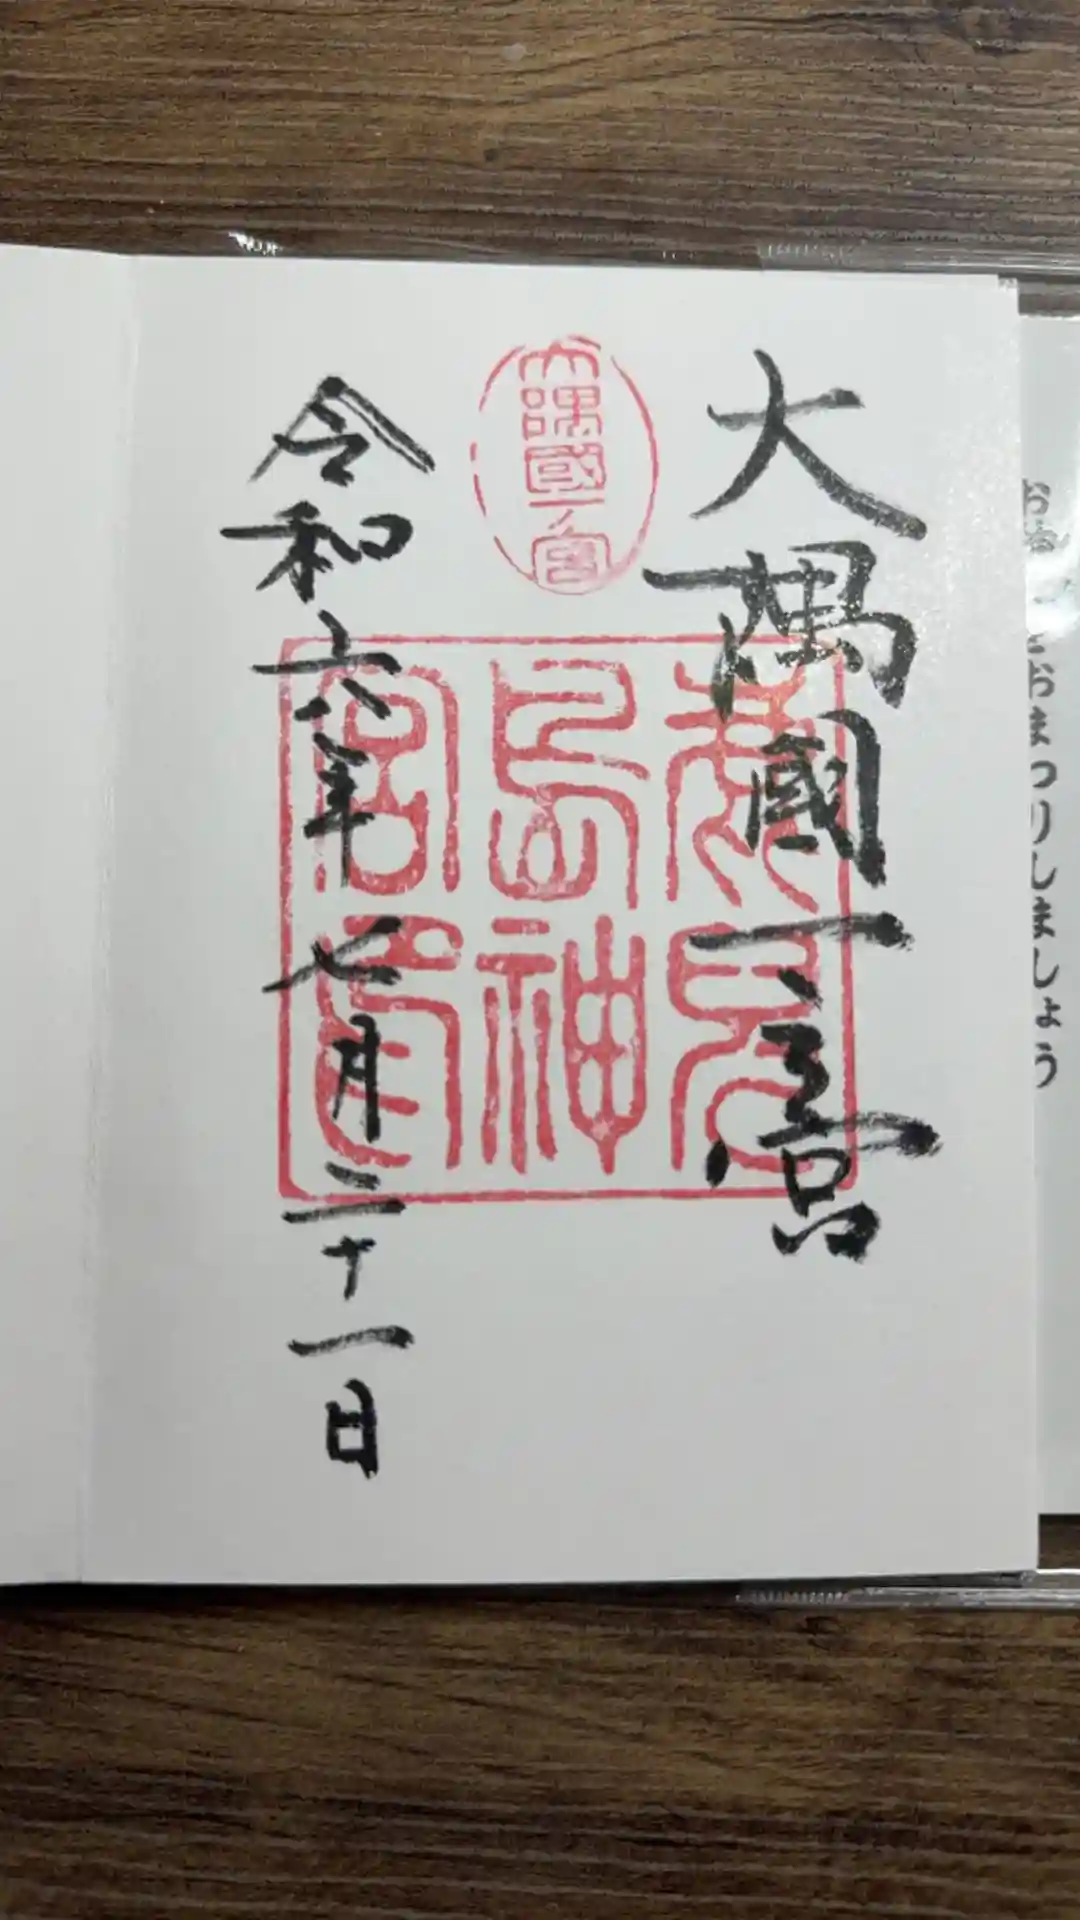 大隅國一之宮
大隅國一ノ宮
鹿兒島神宮
令和六年七月二十一日
おまつりしましょう